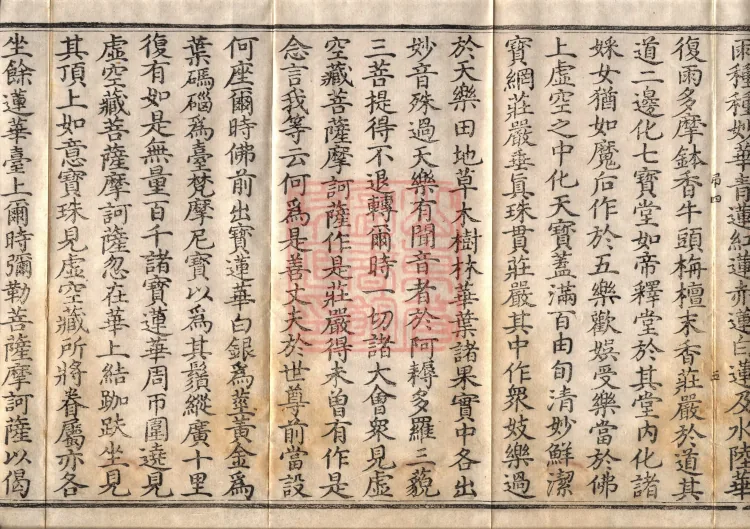 雨種種妙華青蓮紅蓮赤蓮白蓮及水陸華
復雨多摩鉢香牛頭栴檀末香莊嚴於道其
道二邊化七寶堂如帝釋堂於其堂內化諸
婇女猶如魔后作於五樂歡娛受樂當於佛
上虛空之中化天寶蓋滿百由旬清妙鮮潔
寶網莊嚴垂眞珠貫莊嚴其中作眾妓樂過
於天樂田地草木樹林華葉諸果實中各出
妙音殊過天樂有聞音者於阿耨多羅三藐
三菩提得不退轉爾時一切諸大會眾見虛
空藏菩薩摩訶薩作是莊嚴得未曾有作是
念言我等云何爲是善丈夫於世尊前當設
何座爾時佛前出寶蓮華白銀爲莖黃金爲
葉碼碯爲臺梵摩尼寶以爲其鬚縱廣十里
復有如是無量百千諸寶蓮華周帀圍遶見
虛空藏菩薩摩訶薩忽在華上結跏趺坐見
其頂上如意寶珠見虛空藏所將眷屬亦各
坐餘蓮華臺上爾時彌勒菩薩摩訶薩以偈